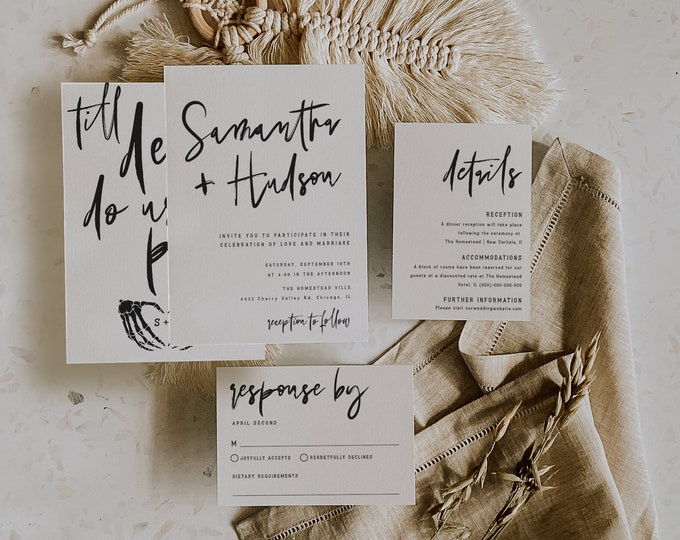 till
do
S +
Samantha
+ Hudson
INVITE YOU TO PARTICIPATE IN THEIR
CELEBRATION OF LOVE AND MARRIAGE
SATURDAY, SEPTEMBER 10TH
AT 4:00 IN THE AFTERNOON
THE HOMESTEAD VILLE
4432 Cherry Valley Rd, Chicago, IL
reception to follow
details
RECEPTION
A dinner reception will take place
following the ceremony at
The Homestead | New Carlisle, Il
ACCOMMODATIONS
A block of rooms have been reserved for our
guests at a discounted rate at The Homestead
Hotel, IL (000)-000-000-000
FURTHER INFORMATION
Please visit ourweddingwebsite.com
response by
APRIL SECOND
M
JOYFULLY ACCEPTS REGRETFULLY DECLINES
DIETARY REQUIREMENTS